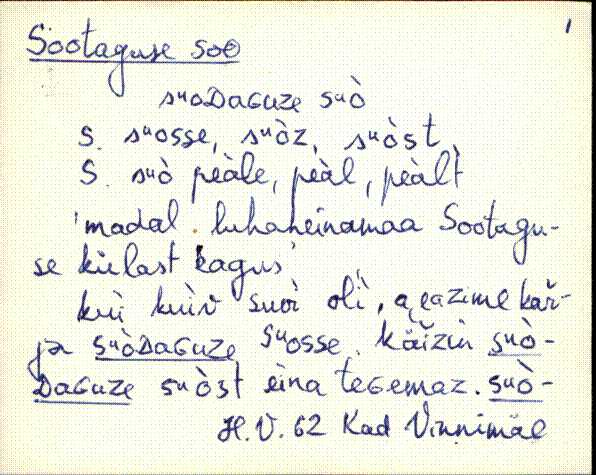 1
Sootaguse soo
suoDaGuze suò
S. suosse, suòz, suòst
S. suò peàle, peàl, peàlt
'madal luhaheinamaa Sootagu-
se külast kagus'
kui kuìv suvi oli, kař-
ja suòDaGuze suosse. käìzin suò-
DaGuze suòst eina teGemaz. suò-
H.V. 62 Kad Vinnimäe